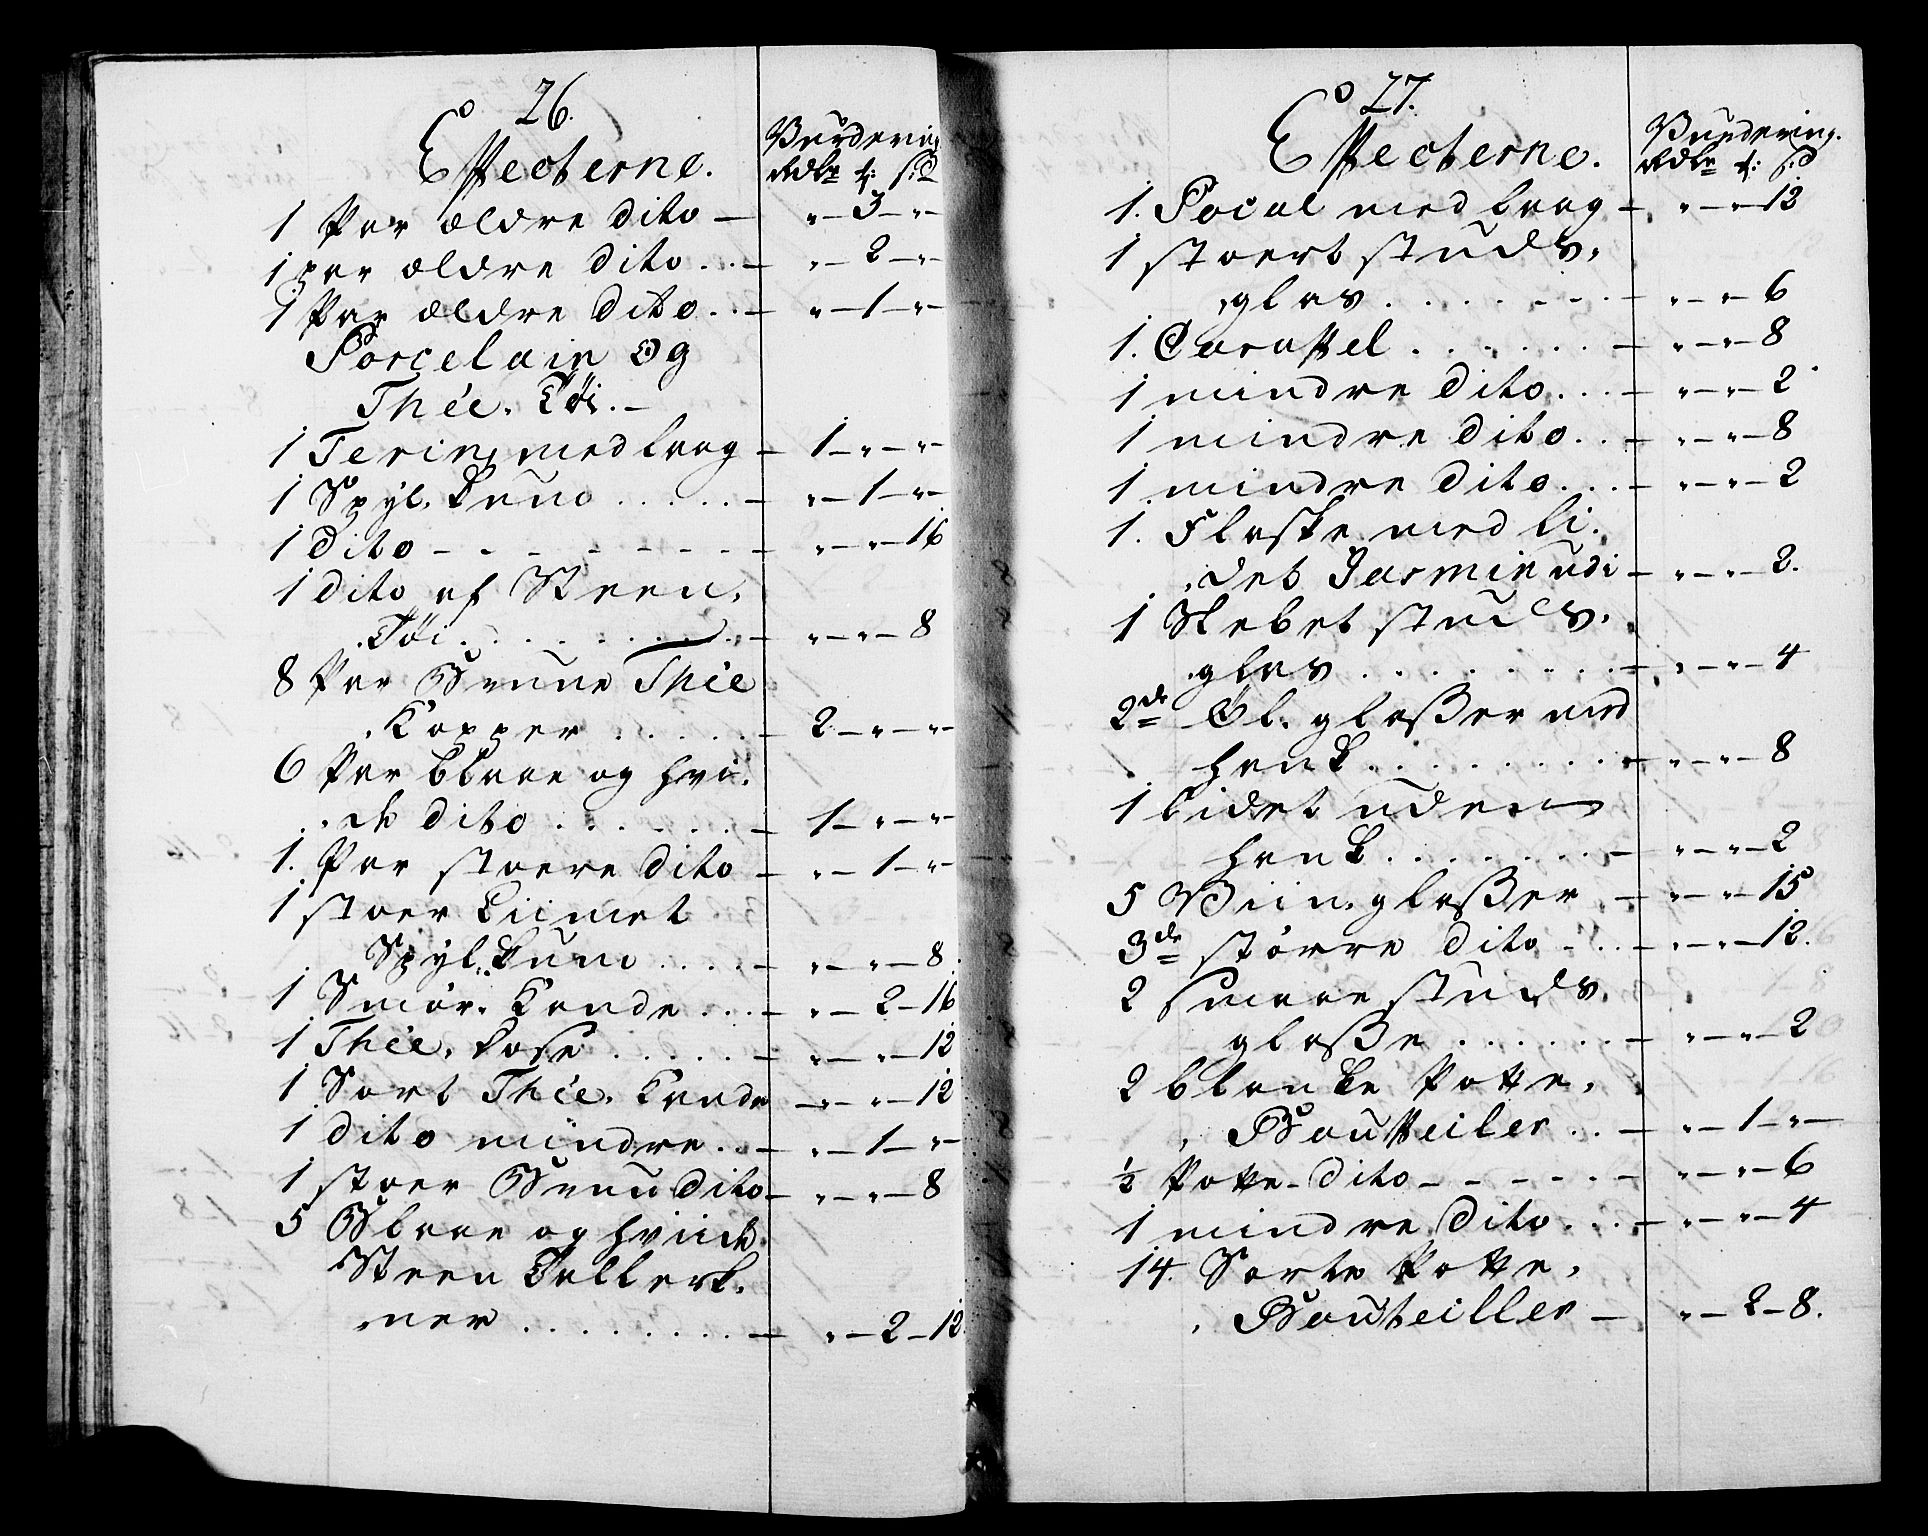 26.
Effecterne.
Vurdering
Rdlr ꝟ: sß
1 Par ældre dito — „ — 3 — „ —
1 par ældre dito . . — „ — 2 — „ —
1 Par ældre dito . . — „ — 1 — „ —
Porcelain Og
Thée-Tøi. —
1 Terin, med laag — 1 — „ — „ —
1 Spyl-kum . . . . . — „ — 1 — „ —
1 dito — - - - - - — „ — „ — 16
1 dito af Steen-
-Tøi . . . . . . . . — „ — „ — 8
8 Par Bruune Thée
-Kopper . . . . . — 2 — „ — „ —
6 Par blaae og hvi-
-de dito . . . . . . — 1 — „ — „ —
1. Par stoere dito — „ — 1 — „ —
1 stoer Liimet
Spyl-kum . . . . — „ — „ — 8
1 Smør-Kande . . . — „ — 2 — 16
1 Thée-daase . . . . . — „ — „ — 12
1 Sort Thée-Kande — „ — „ — 12
1 dito mindre . . — „ — 1 — „ —
1 stoer Bruun dito — „ — „ — 8
5 Blaae og hviide
Steen Tallerk-
-ner . . . . . . . . — „ — 2 — 12.
27.
Effecterne.
Vurdering.
Rdlr ꝟ: sß
1. Pocal med laag — „ — „ — 12
1 stoert studs-
-glas . . . . . . . — „ — „ — 6
1. Caraffel . . . . . . — „ — „ — 8
1 mindre dito . . . — „ — „ — 2
1 mindre dito . . — „ — „ — 8
1 mindre dito . . . — „ — „ — 2
1. Flaske med li-
-det Jasmin udi — „ — „ — 2.
1 Slebet studs-
-glas . . . . . . . . . — „ — „ — 4
2de Øl-glaßer med
hank . . . . . . . . . — „ — „ — 8
1 lidet uden
hank . . . . . . . . — „ — „ — 2
5 Viin-glaßer — „ — „ — 15
3de større dito — . . — „ — „ — 12.
2 smaae studs-
glaße . . . . . . — „ — „ — 2
2 blanke Potte-
-Bouffeiler . . — „ — 1 — „ —
½ Potte-dito — - - - - — „ — „ — 6
1 mindre dito . . . — „ — „ — 4
14. Sorte Potte-
-Bouteiller — „ — 2 — 8.